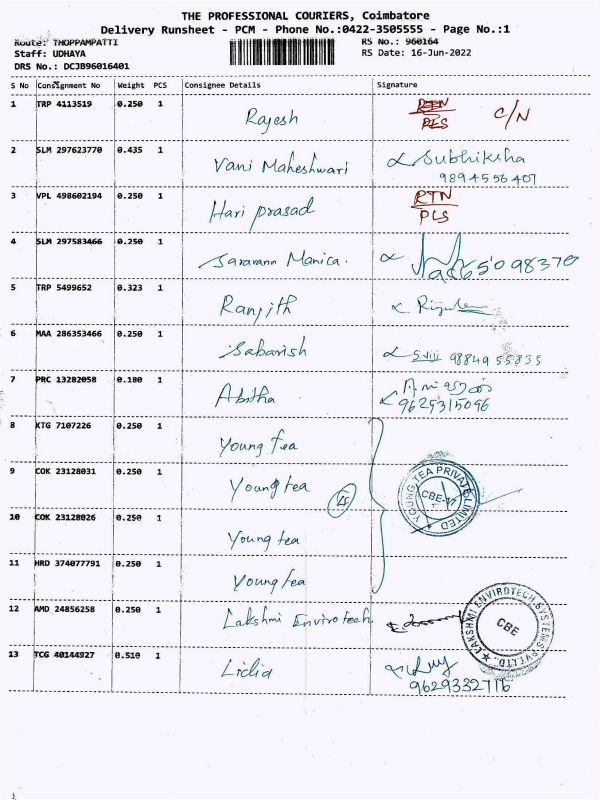 THE PROFESSIONAL COURIERS, Coimbatore
Delivery Runsheet - PCM - Phone No.:0422-3505555 - Page No.:1
Route: THOPPAMPATTI
RS No.: 960164
Staff: UDHAYA
RS Date: 16-Jun-2022
DRS No.: DCJB96016401
S No Consignment No Weight PCS Consignee Details Signature
1 TRP 4113519 0.250 1 Rajesh RTN PLS C/N
2 SLM 297623770 0.435 1 Vani Maheshwari Subhiksha
9894556407
3 VPL 498602194 0.250 1 Hari prasad RTN
PLS
4 SLM 297583466 0.250 1 Manica.
5 TRP 5499652 0.323 1 Ranjith
6 MAA 286353466 0.250 1 Sabarish 9884955835
7 PRC 13282058 0.180 1 Abitha
9629315096
8 KTG 7107226 0.250 1 Young Tea
9 COK 23128031 0.250 1 Young tea
YOUNG TEA PRIVATE LIMITED
CBE-17
10 COK 23128026 0.250 1 Young tea
11 HRD 374077791 0.250 1 Young tea
12 AMD 24856258 0.250 1 Lakshmi Envirotech
LAKSHMI ENVIROTECH SYSTEMS PVT LTD.
CBE
13 TCG 40144927 0.510 1 Lidia
9629332716